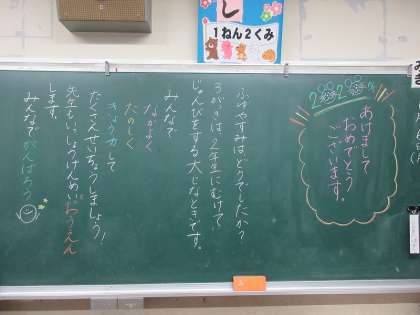 し
1ねん2くみ
2020
あけまして
おめでとう
ございます。
ふゆやすみはどうでしたか?
3がっきは、2年生にむけて
じゅんびをする大じなときです。
みんなで
なかよく
たのしく
きょう力して
たくさんせいちょうしましょう!
先生もいっしょうけんめいおうえん
します。
みんなでがんばろう